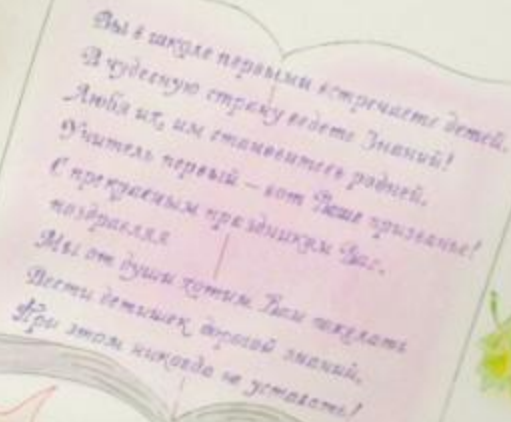 Вы в школе первыми встречаете детей.
В чудесную страну ведете Знаний!
Любя их, им становитесь родней.
Учитель первый – вот Ваше призванье!
С прекрасным праздником Вас,
поздравляя
Мы от души хотим Вам пожелать
Вести детишек дорогой знаний,
При этом никогда не уставать!